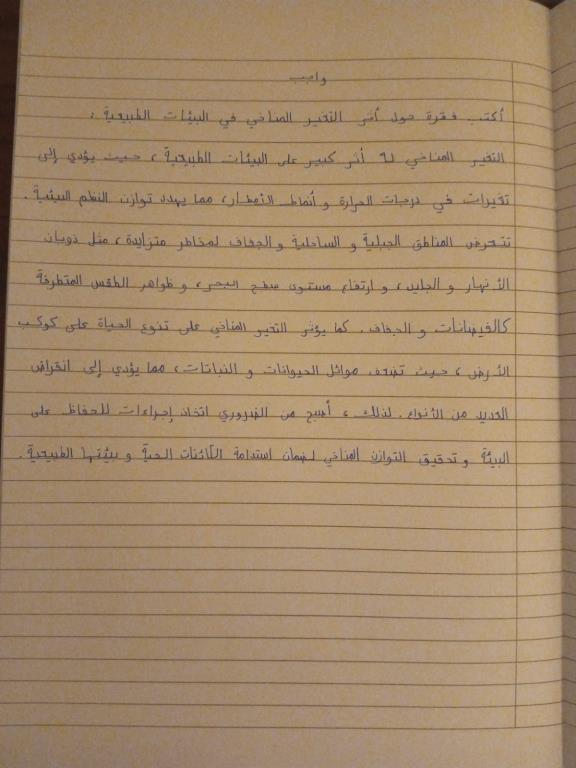 واجب
أكتب فقرة حول أثر التغير المناخي في البيئات الطبيعية :
التغير المناخي له أثر كبير على البيئات الطبيعية، حيث يؤدي إلى
تغيرات في درجات الحرارة و أنماط الأمطار، مما يهدد توازن النظم البيئية .
تتعرض المناطق الجبلية و الساحلية و الجفاف لمخاطر متزايدة، مثل ذوبان
الأنهار و الجليد، و ارتفاع مستوى سطح البحر، و ظواهر الطقس المتطرفة
كالفيضانات و الجفاف. كما يؤثر التغير المناخي على تنوع الحياة على كوكب
الأرض، حيث تضعف موائل الحيوانات و النباتات، مما يؤدي إلى انقراض
العديد من الأنواع. لذلك، أصبح من الضروري اتخاذ إجراءات للحفاظ على
البيئة و تحقيق التوازن المناخي لضمان استدامة الكائنات الحية و بيئتها الطبيعية .